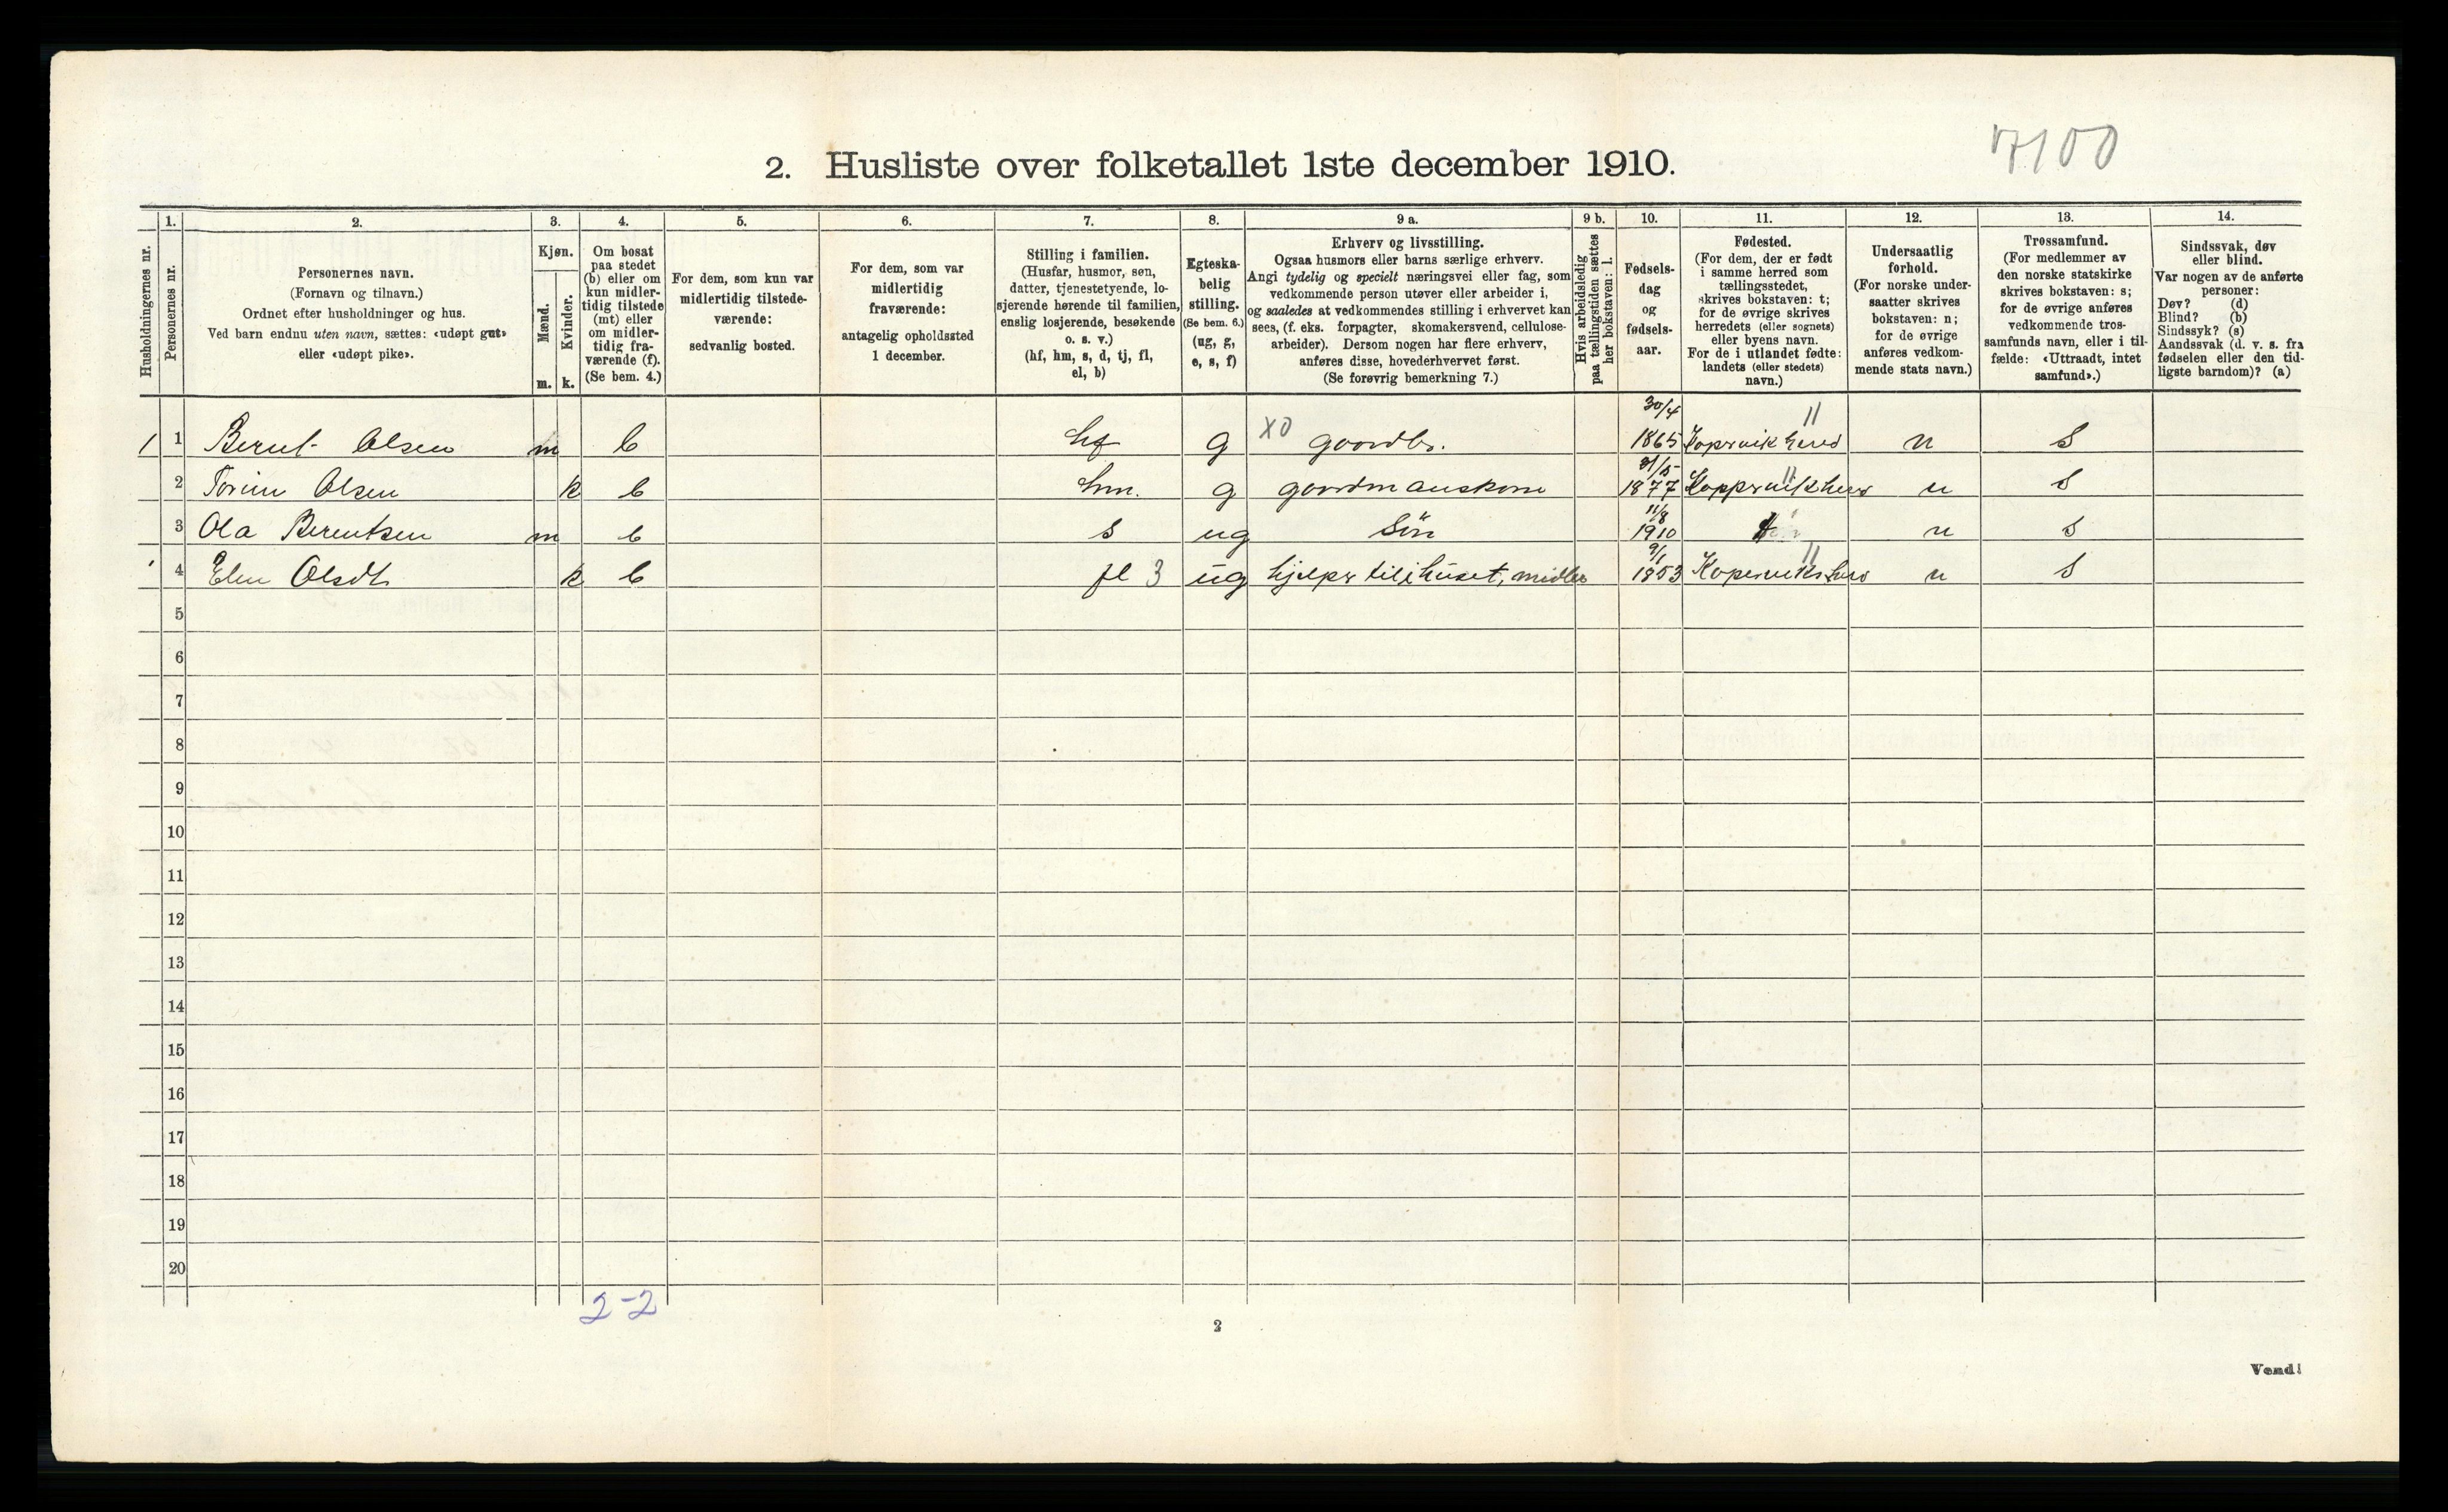 7100
2. Husliste over folketallet 1ste december 1910.
Husholdningernes nr.
1.
Personernes nr.
2.
Personernes navn.
(Fornavn og tilnavn.)
Ordnet efter husholdninger og hus.
Ved barn endnu uten navn, sættes: «udøpt gut»
eller «udøpt pike».
3.
Kjøn.
Mænd.
Kvinder.
m. k.
4.
Om bosat
paa stedet
(b) eller om
kun midler-
tidig tilstede
(mt) eller
om midler-
tidig fra-
værende (f).
(Se bem. 4.)
5.
For dem, som kun var
midlertidig tilstede-
værende:
sedvanlig bosted.
6.
For dem, som var
midlertidig
fraværende:
antagelig opholdssted
1 december.
7.
Stilling i familien.
(Husfar, husmor, søn,
datter, tjenestetyende, lo-
sjerende hørende til familien,
enslig losjerende, besøkende
o. s. v.)
(hf, hm, s, d, tj, fl,
el, b)
8.
Egteska-
belig
stilling.
(Se bem. 6.)
(ug, g,
e, s, f)
9 a.
Erhverv og livsstilling.
Ogsaa husmors eller barns særlige erhverv.
Angi tydelig og specielt næringsvei eller fag, som
vedkommende person utøver eller arbeider i,
og saaledes at vedkommendes stilling i erhvervet kan
sees, (f. eks. forpagter, skomakersvend, cellulose-
arbeider). Dersom nogen har flere erhverv,
anføres disse, hovederhvervet først.
(Se forøvrig bemerkning 7.)
9 b.
Hvis arbeidsledig
paa tællingstiden sættes
her bokstaven: l.
10.
Fødsels-
dag
og
fødsels-
aar.
11.
Fødested.
(For dem, der er født
i samme herred som
tællingsstedet,
skrives bokstaven: t;
for de øvrige skrives
herredets (eller sognets)
eller byens navn.
For de i utlandet fødte:
landets (eller stedets)
navn.)
12.
Undersaatlig
forhold.
(For norske under-
saatter skrives
bokstaven: n;
for de øvrige
anføres vedkom-
mende stats navn.)
13.
Trossamfund.
(For medlemmer av
den norske statskirke
skrives bokstaven: s;
for de øvrige anføres
vedkommende tros-
samfunds navn, eller i til-
fælde: «Uttraadt, intet
samfund».)
14.
Sindssvak, døv
eller blind.
Var nogen av de anførte
personer:
Døv? (d)
Blind? (b)
Sindssyk? (s)
Aandssvak (d. v. s. fra
fødselen eller den tid-
ligste barndom)? (a)
1 1 Bernt Olsen m b hf g XO gaardbr. 30/4 1865 Kopervik herred n s
2 Olsen k b hm. g gaardmanskone 1877 n s
3 Ola Berentsen m b s ug Søn 11/8 1910 n s
4 Elen Olsdt. k b fl 3 ug hjelper til i huset, 9/1 1853 n s
5
6
7
8
9
10
11
12
13
14
15
16
17
18
19
20
2-2
2
Vend!